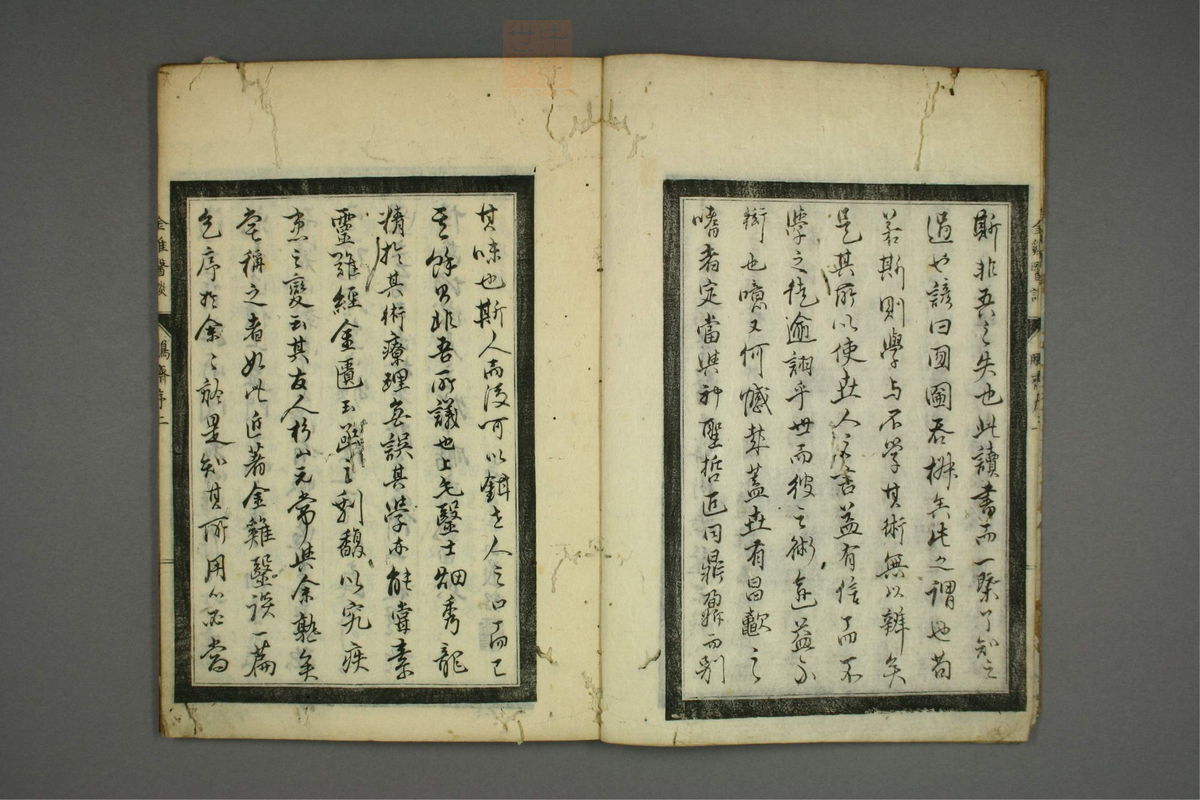 斯非吾之失也此讀書而一祭了知之
過也諺曰囫圇吞棗此之謂也苟
若斯則學与不學其術無以辨矣
是其所以使世人之言益有信而不
學之徒逾詡乎世而彼之術逾益不
衒也噫又何憾哉蓋世有昌歜之
嗜者定當與神聖哲匠同鼎鼐而別
其味也斯人而後可以餌世人之口而已
其餘者非吾所議也上毛醫士畑秀龍
精於其術療理無誤其學亦能嘗素
靈難經金匱玉函之剩馥以究疾
之變玉其友人杉山元常與余熟矣
常稱之者如此近著金雞醫談一篇
乞序於余余於是知其所用心必當
金雞醫談